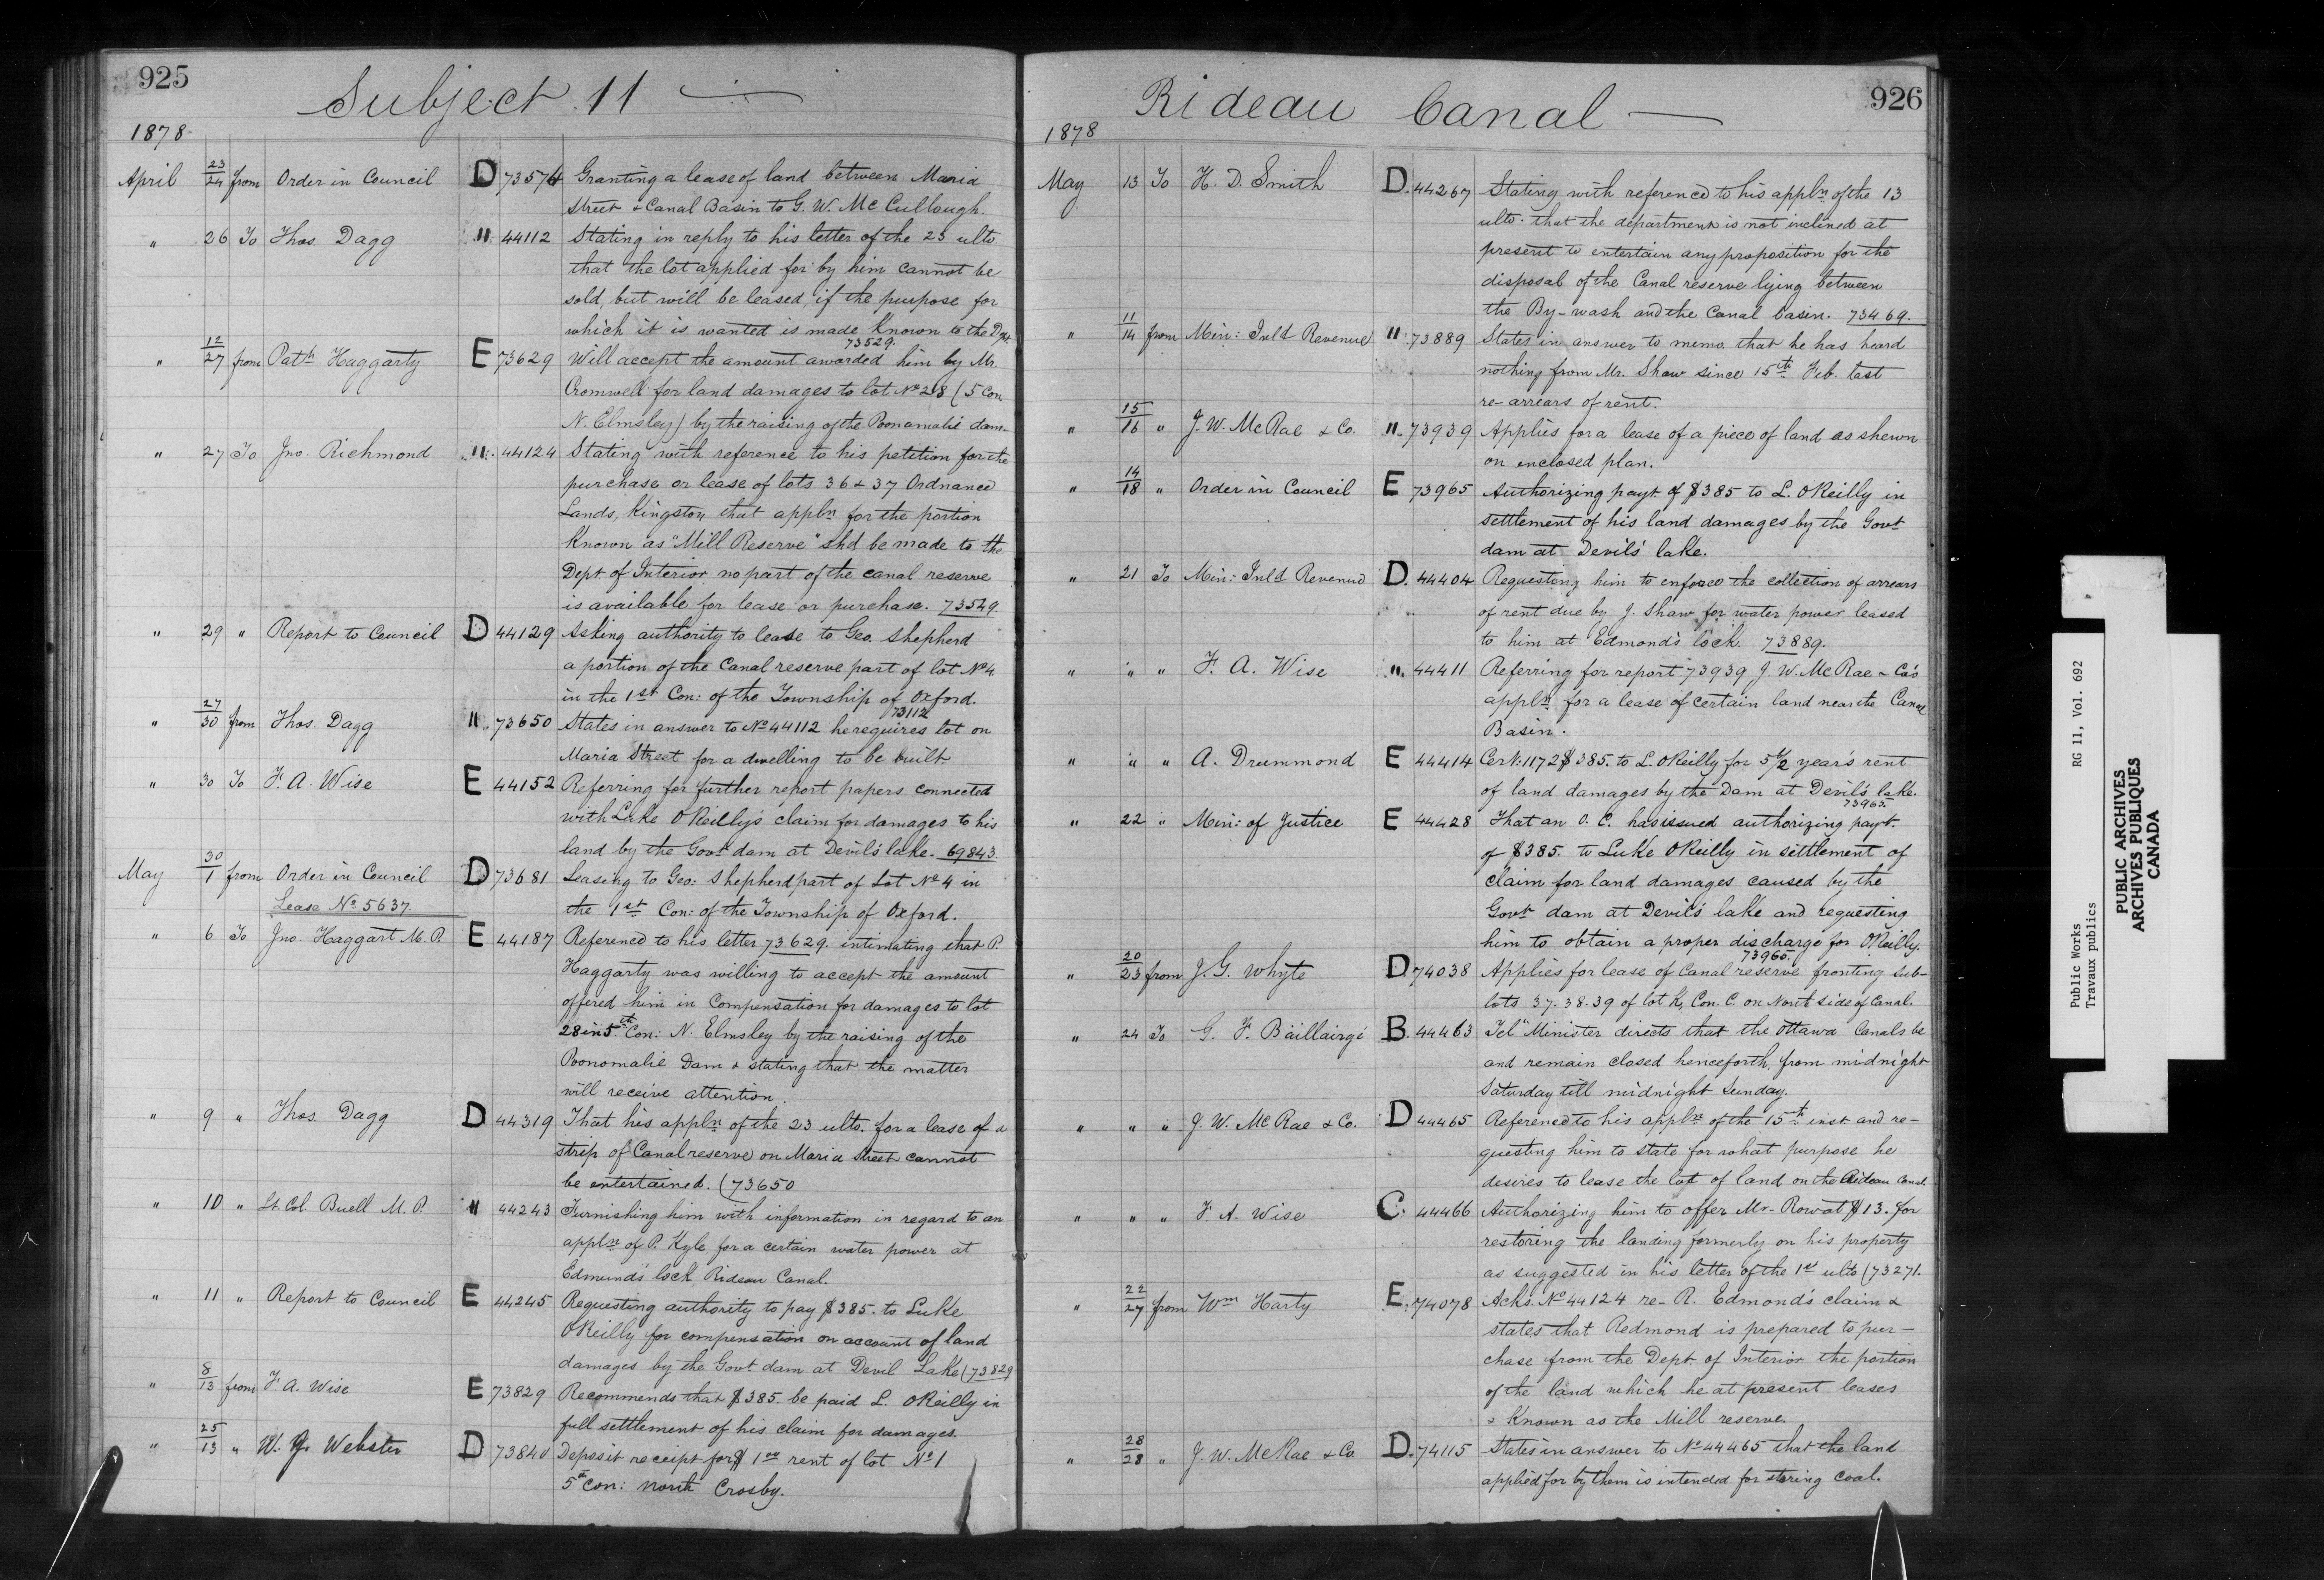 925
Subject 11
1878
April 23/24 from Order in Council D 73574 Granting a lease of land between Maria
Street & Canal Basin to G. W. McCullough.
" 26 To Thos. Dagg " 44112 Stating in reply to his letter of the 23 ulto
that the lot applied for by him cannot be
sold, but will be leased, if the purpose for
which it is wanted is made known to the Dept
73529.
" 12/27 from Patk Haggarty E 73629 Will accept the amount awarded him by Mr.
Cromwell for land damages to lot No 28 (5 Con.
N. Elmsley) by the raising of the Poonamalie dam.
" 27 To Jno. Richmond " 44124 Stating with reference to his petition for the
purchase or lease of lots 36 & 37 Ordnance
Lands, Kingston, that appln for the portion
known as "Mill Reserve" shd be made to the
Dept of Interior, no part of the canal reserve
is available for lease or purchase. 73529.
" 29 " Report to Council D 44129 Asking authority to lease to Geo. Shepherd
a portion of the Canal reserve part of lot No 4
in the 1st Con: of the Township of Oxford.
73112
" 27/30 from Thos. Dagg " 73650 States in answer to No 44112 he requires lot on
Maria Street for a dwelling to be built
" 30 To F. A. Wise E 44152 Referring for further report papers connected
with Luke OReilly's claim for damages to his
land by the Govt dam at Devil's lake. 69843.
May 30/1 from Order in Council D 73681 Leasing to Geo: Shepherd part of Lot No 4 in
Lease No 5637. the 1st Con: of the Township of Oxford.
" 6 To Jno. Haggart M.P. E 44187 Reference to his letter 73629. intimating that P.
Haggarty was willing to accept the amount
offered him in Compensation for damages to lot
28 in 5th Con: N. Elmsley by the raising of the
Poonomalie Dam & stating that the matter
will receive attention.
" 9 " Thos. Dagg D 44319 That his appln of the 23 ulto. for a lease of a
strip of Canal reserve on Maria Street cannot
be entertained. (73650
" 10 " Lt. Col. Buell M.P. " 44243 Furnishing him with information in regard to an
appln of P. Kyle for a certain water power at
Edmund's lock Rideau Canal.
" 11 " Report to Council E 44245 Requesting authority to pay $385. to Luke
OReilly for compensation on account of land
damages by the Govt dam at Devil Lake (73829
" 8/13 from F. A. Wise E 73829 Recommends that $385. be paid L. OReilly in
full settlement of his claim for damages.
" 25/13 " W. J. Webster D 73840 Deposit receipt for $1 00 rent of lot No 1
5th Con: North Crosby.
926
Rideau Canal
1878
May 13 To H. D. Smith D. 44267 Stating with reference to his appln of the 13
ulto. that the department is not inclined at
present to entertain any proposition for the
disposal of the Canal reserve lying between
the By-wash and the Canal basin. 73469.
" 11/14 from Min: Inld Revenue " 73889 States in answer to memo. that he has heard
nothing from Mr. Shaw since 15th Feb. last
re-arrears of rent.
" 15/16 " J. W. McRae & Co. " 73939 Applies for a lease of a piece of land as shewn
on enclosed plan.
" 14/18 " Order in Council E 73965 Authorizing payt of $385 to L. OReilly in
settlement of his land damages by the Govt
dam at Devil's lake.
" 21 To Min: Inld Revenue D. 44404 Requesting him to enforce the collection of arrears
of rent due by J. Shaw for water power leased
to him at Edmond's lock. 73889.
" " " F. A. Wise " 44411 Referring for report 73939 J. W. McRae & Co's
appln for a lease of certain land near the Canal
Basin.
" " " A. Drummond E 44414 Cert. 1172 $385. to L. OReilly for 5 1/2 year's rent
of land damages by the Dam at Devil's lake.
73965
" 22 " Min: of Justice E 44428 That an O. C. has issued authorizing payt.
of $385. to Luke OReilly in settlement of
claim for land damages caused by the
Govt dam at Devil's lake and requesting
him to obtain a proper discharge for OReilly.
73965.
" 20/23 from J. G. Whyte D 74038 Applies for lease of Canal reserve fronting sub-
lots 37. 38. 39 of lot K, Con. C. on North side of Canal.
" 24 To G. F. Baillairgé B. 44463 Tel "Minister directs that the Ottawa Canals be
and remain closed henceforth, from midnight
Saturday till midnight Sunday.
" " " J. W. McRae & Co. D 44465 Reference to his appln of the 15th inst and re-
questing him to state for what purpose he
desires to lease the lot of land on the Rideau Canal
" " " F. A. Wise C. 44466 Authorizing him to offer Mr. Rowat $13. for
restoring the landing formerly on his property
as suggested in his letter of the 1st ulto (73271.
" 22/27 from Wm Harty E. 74078 Acks. No 44124 re- R. Edmond's claim &
states that Redmond is prepared to pur-
chase from the Dept of Interior the portion
of the land which he at present leases
& known as the Mill reserve.
" 28/28 " J. W. McRae & Co. D. 74115 States in answer to No 44465 that the land
applied for by them is intended for storing coal.
Public Works RG 11, Vol. 692
Travaux publics
PUBLIC ARCHIVES
ARCHIVES PUBLIQUES
CANADA